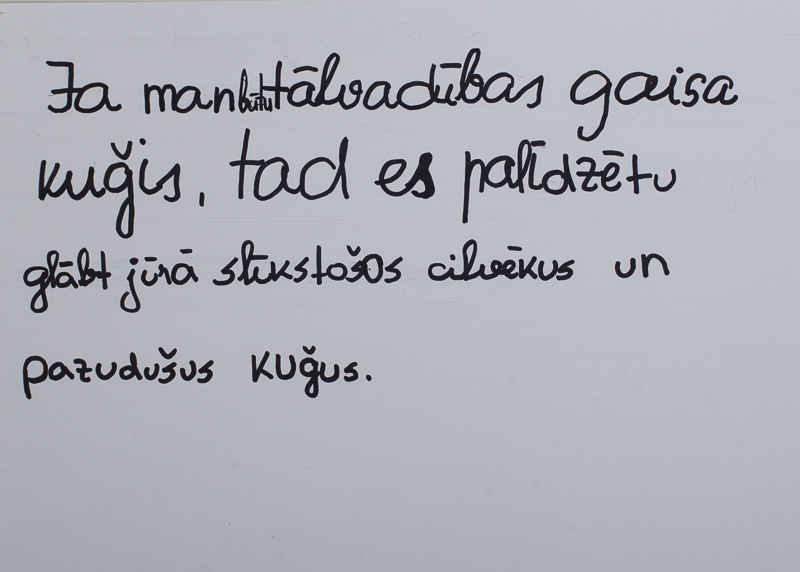 Ja man būtu tālvadības gaisa
kuģis, tad es palīdzētu
glābt jūrā slīkstošos cilvēkus un
pazudušus kuģus.